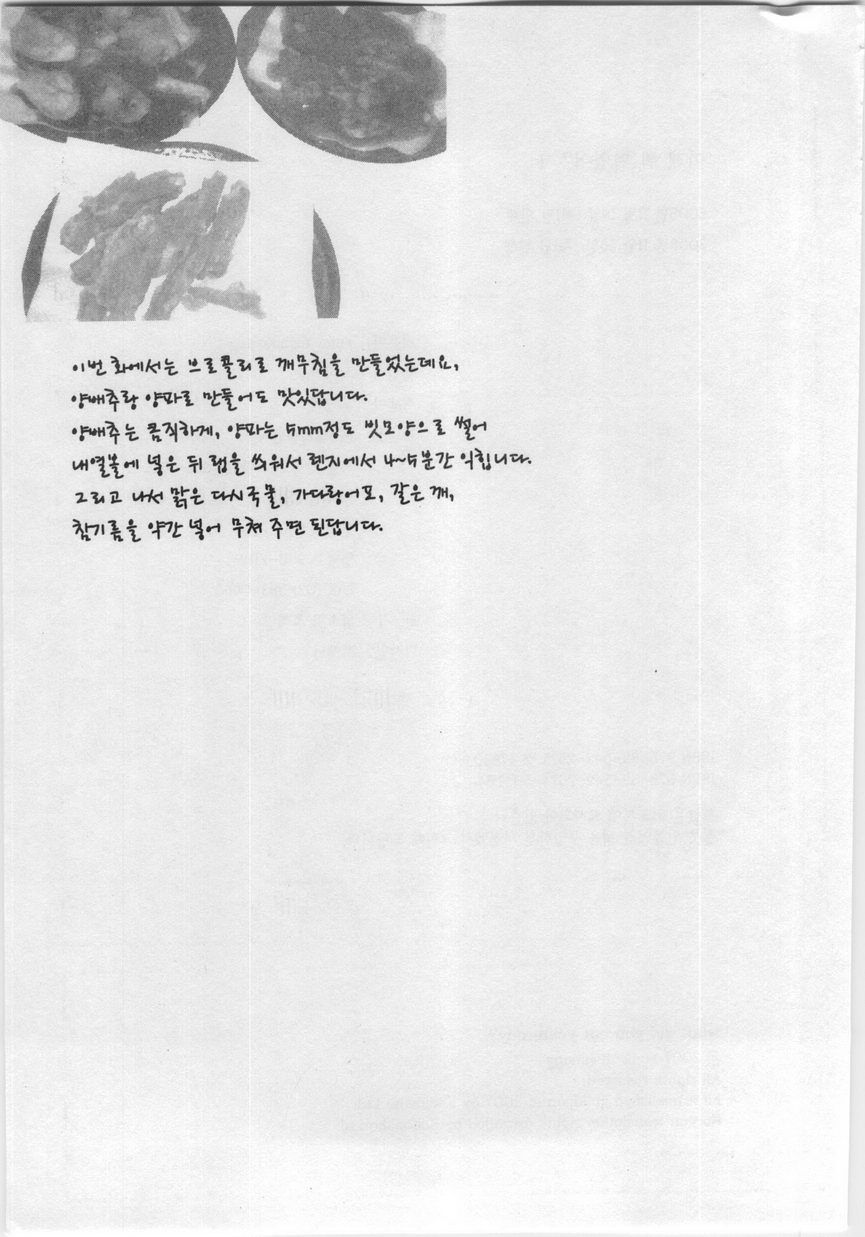 이번 화에서는 브로콜리로 깨무침을 만들었는데요,
양배추랑 양파로 만들어도 맛있답니다.
양배추는 큼직하게, 양파는 5mm정도 빗모양으로 썰어
내열볼에 넣은 뒤 랩을 씌워서 렌지에서 4~5분간 익힙니다.
그리고 나서 맑은 다시국물, 가다랑어포, 갈은 깨,
참기름을 약간 넣어 무쳐 주면 된답니다.